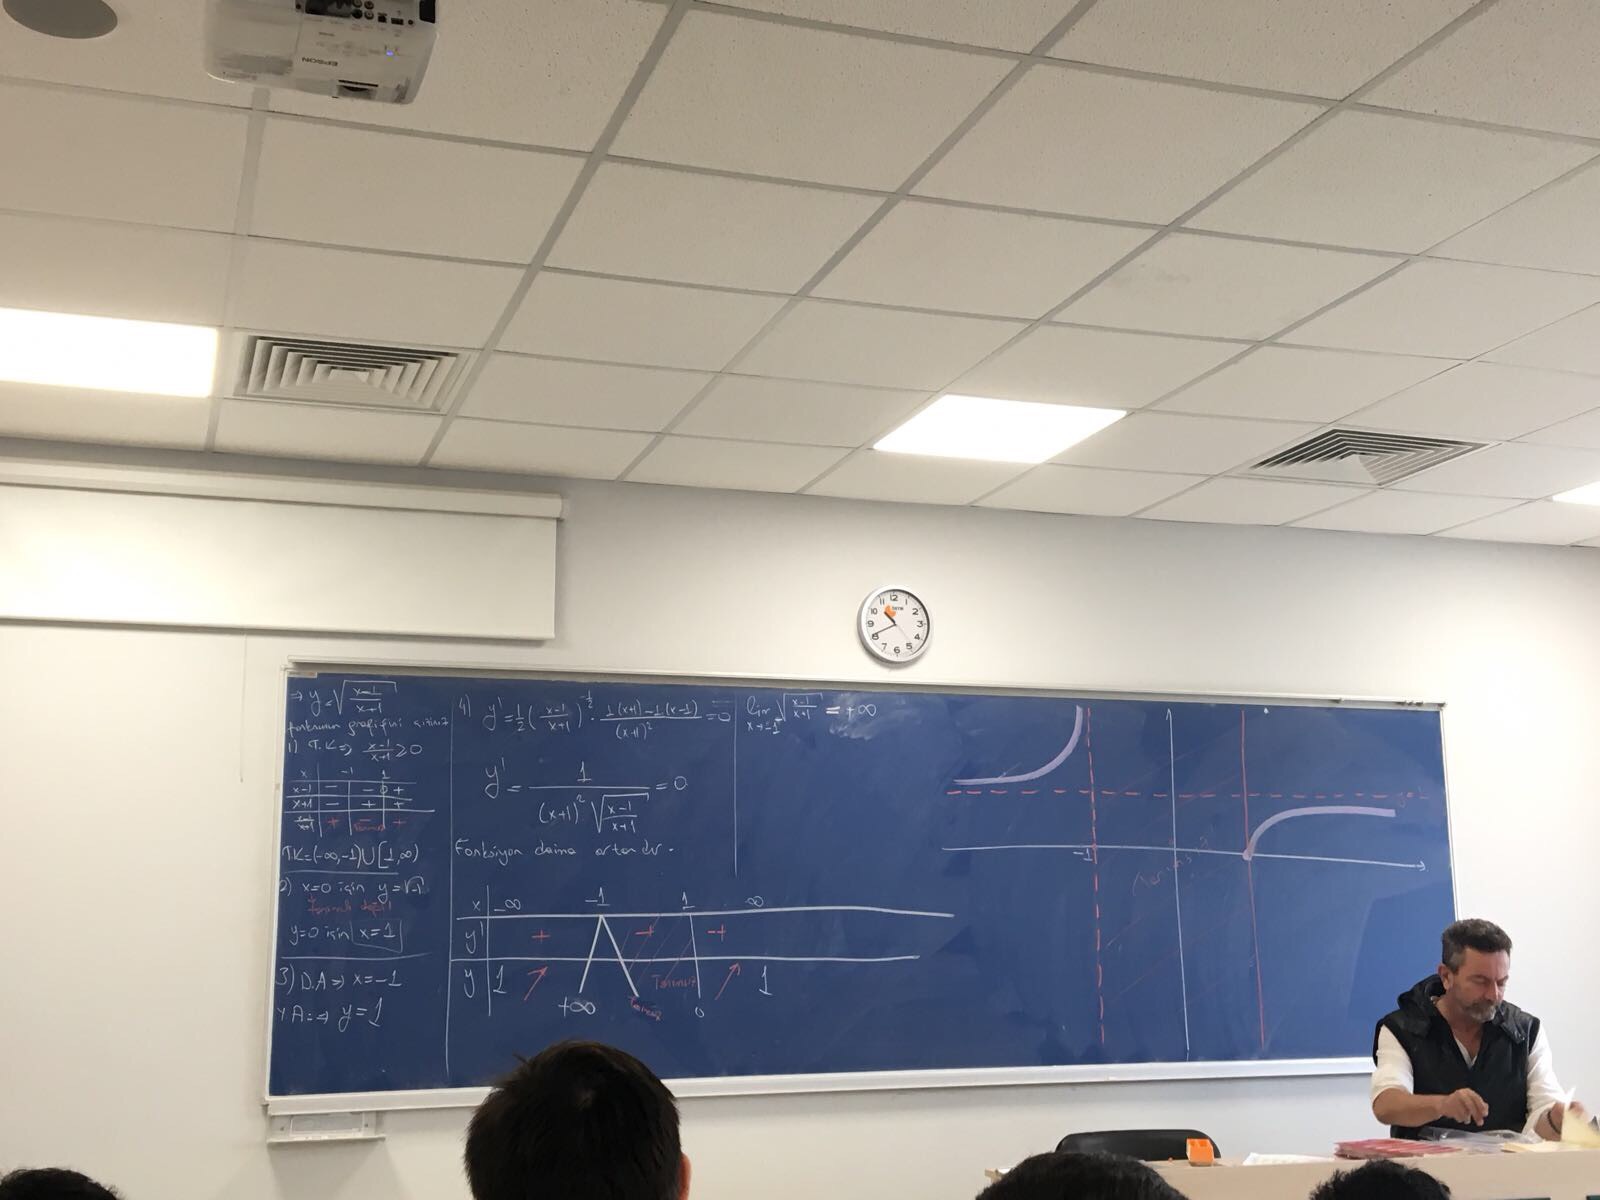 EPSON
⇒ y=√((x-1)/(x+1))
fonksiyonun grafiğini çiziniz
1) T.K ⇒ (x-1)/(x+1) ≥ 0
x -1 1
x-1 - - 0 +
x+1 - + +
(x-1)/(x+1) + - +
T.K=(-∞,-1)∪[1,∞)
2) x=0 için y=√-1
Tanımlı değil
y=0 için x=1
3) D.A ⇒ x=-1
Y.A ⇒ y=1
4) y'=1/2((x-1)/(x+1))^(-1/2) · (1(x+1)-1(x-1))/(x+1)² =0
y'= 1/((x+1)²√((x-1)/(x+1))) =0
Fonksiyon daima artandır.
x -∞ -1 1 ∞
y' + + +
y 1 ↗ +∞ Tanımsız Tanımsız 0 ↗ 1
lim x→-1⁻ √((x-1)/(x+1)) = +∞
y=1
-1
12 1 2 3 4 5 6 7 8 9 10 11